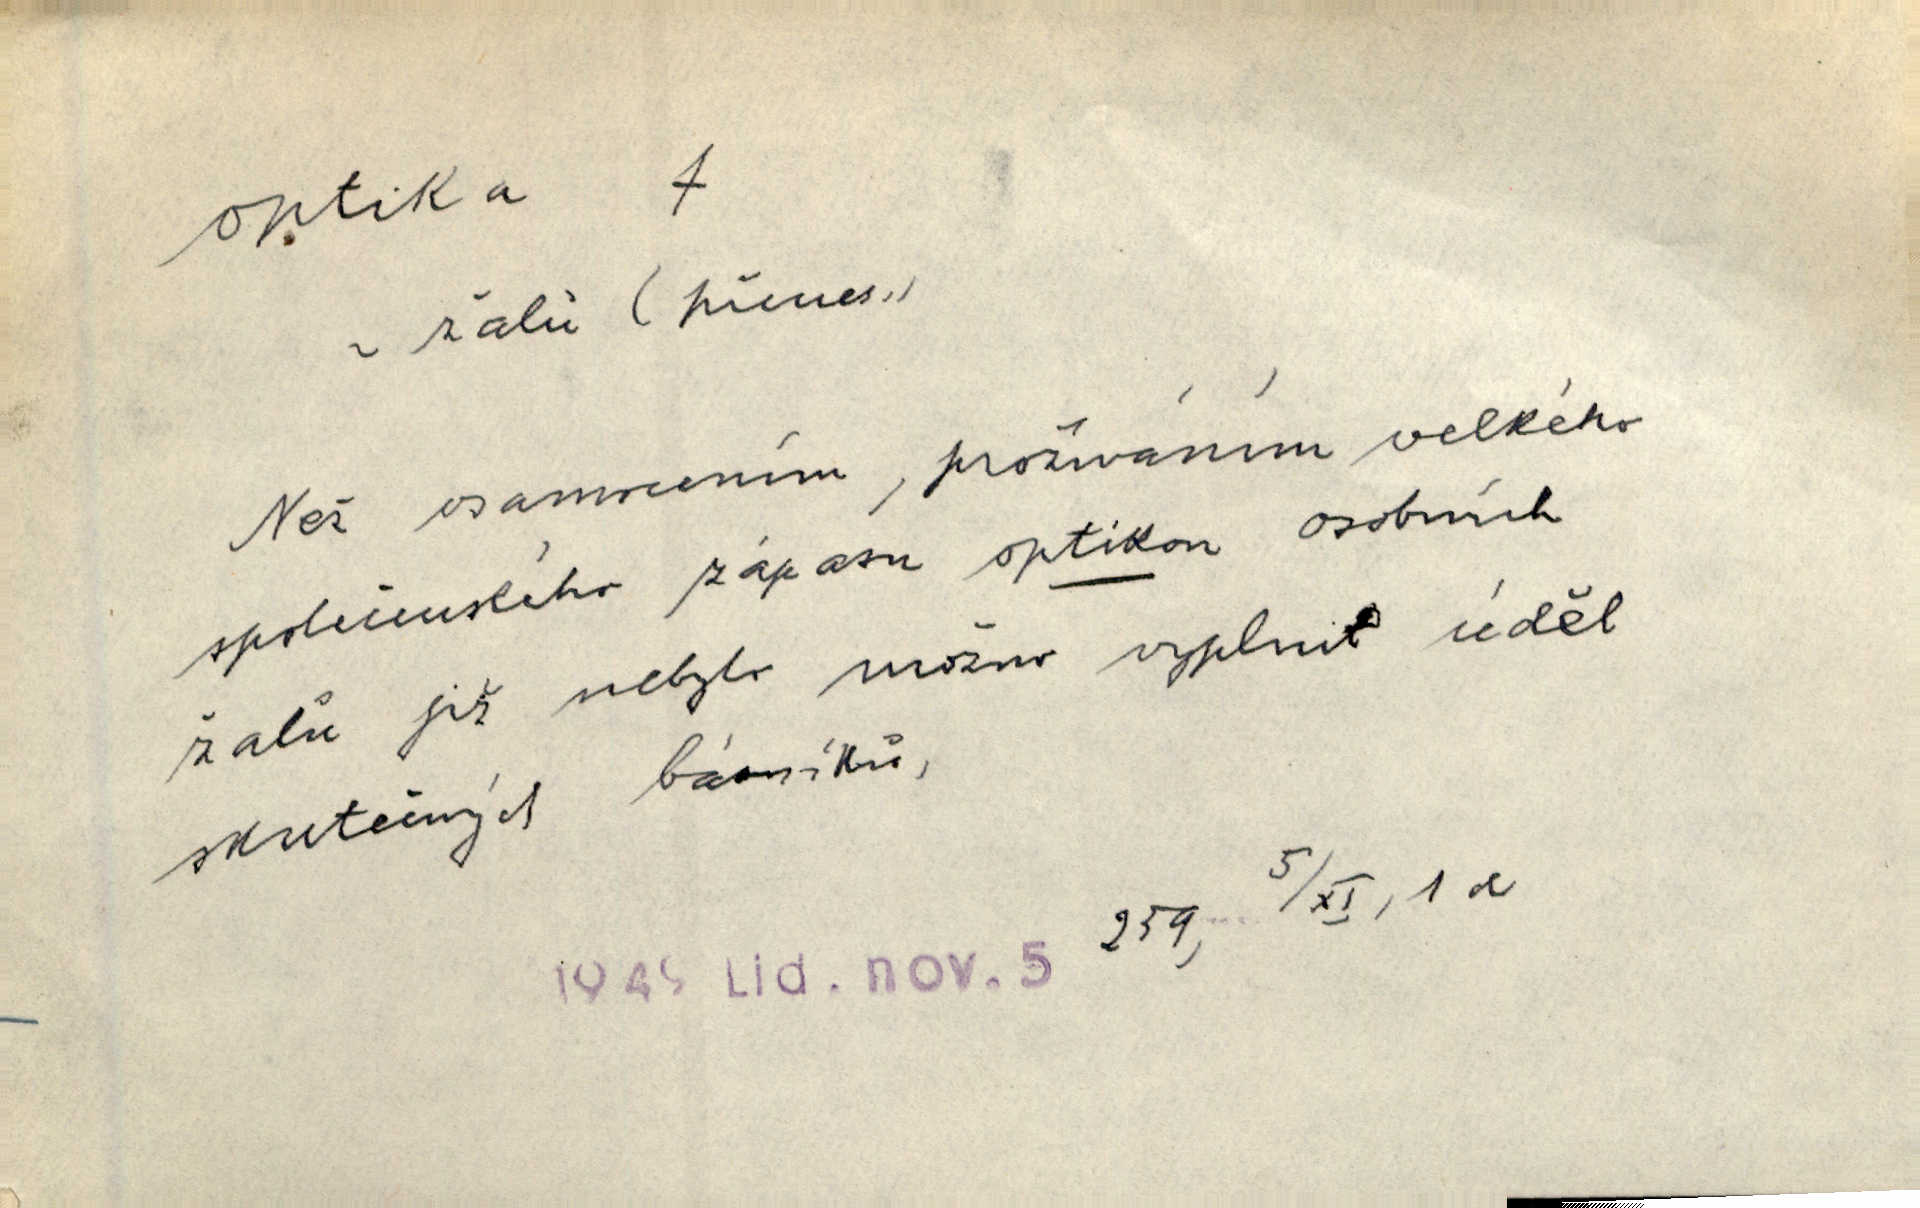 optika f
~ žalů (přenes.,
Než osamocením, prožíváním velkého
společenského zápasu optikou osobních
žalů již nebylo možno vyplnit úděl
skutečných básníků,
1945 Lid. nov. 5 259, 5/XI, 1 d